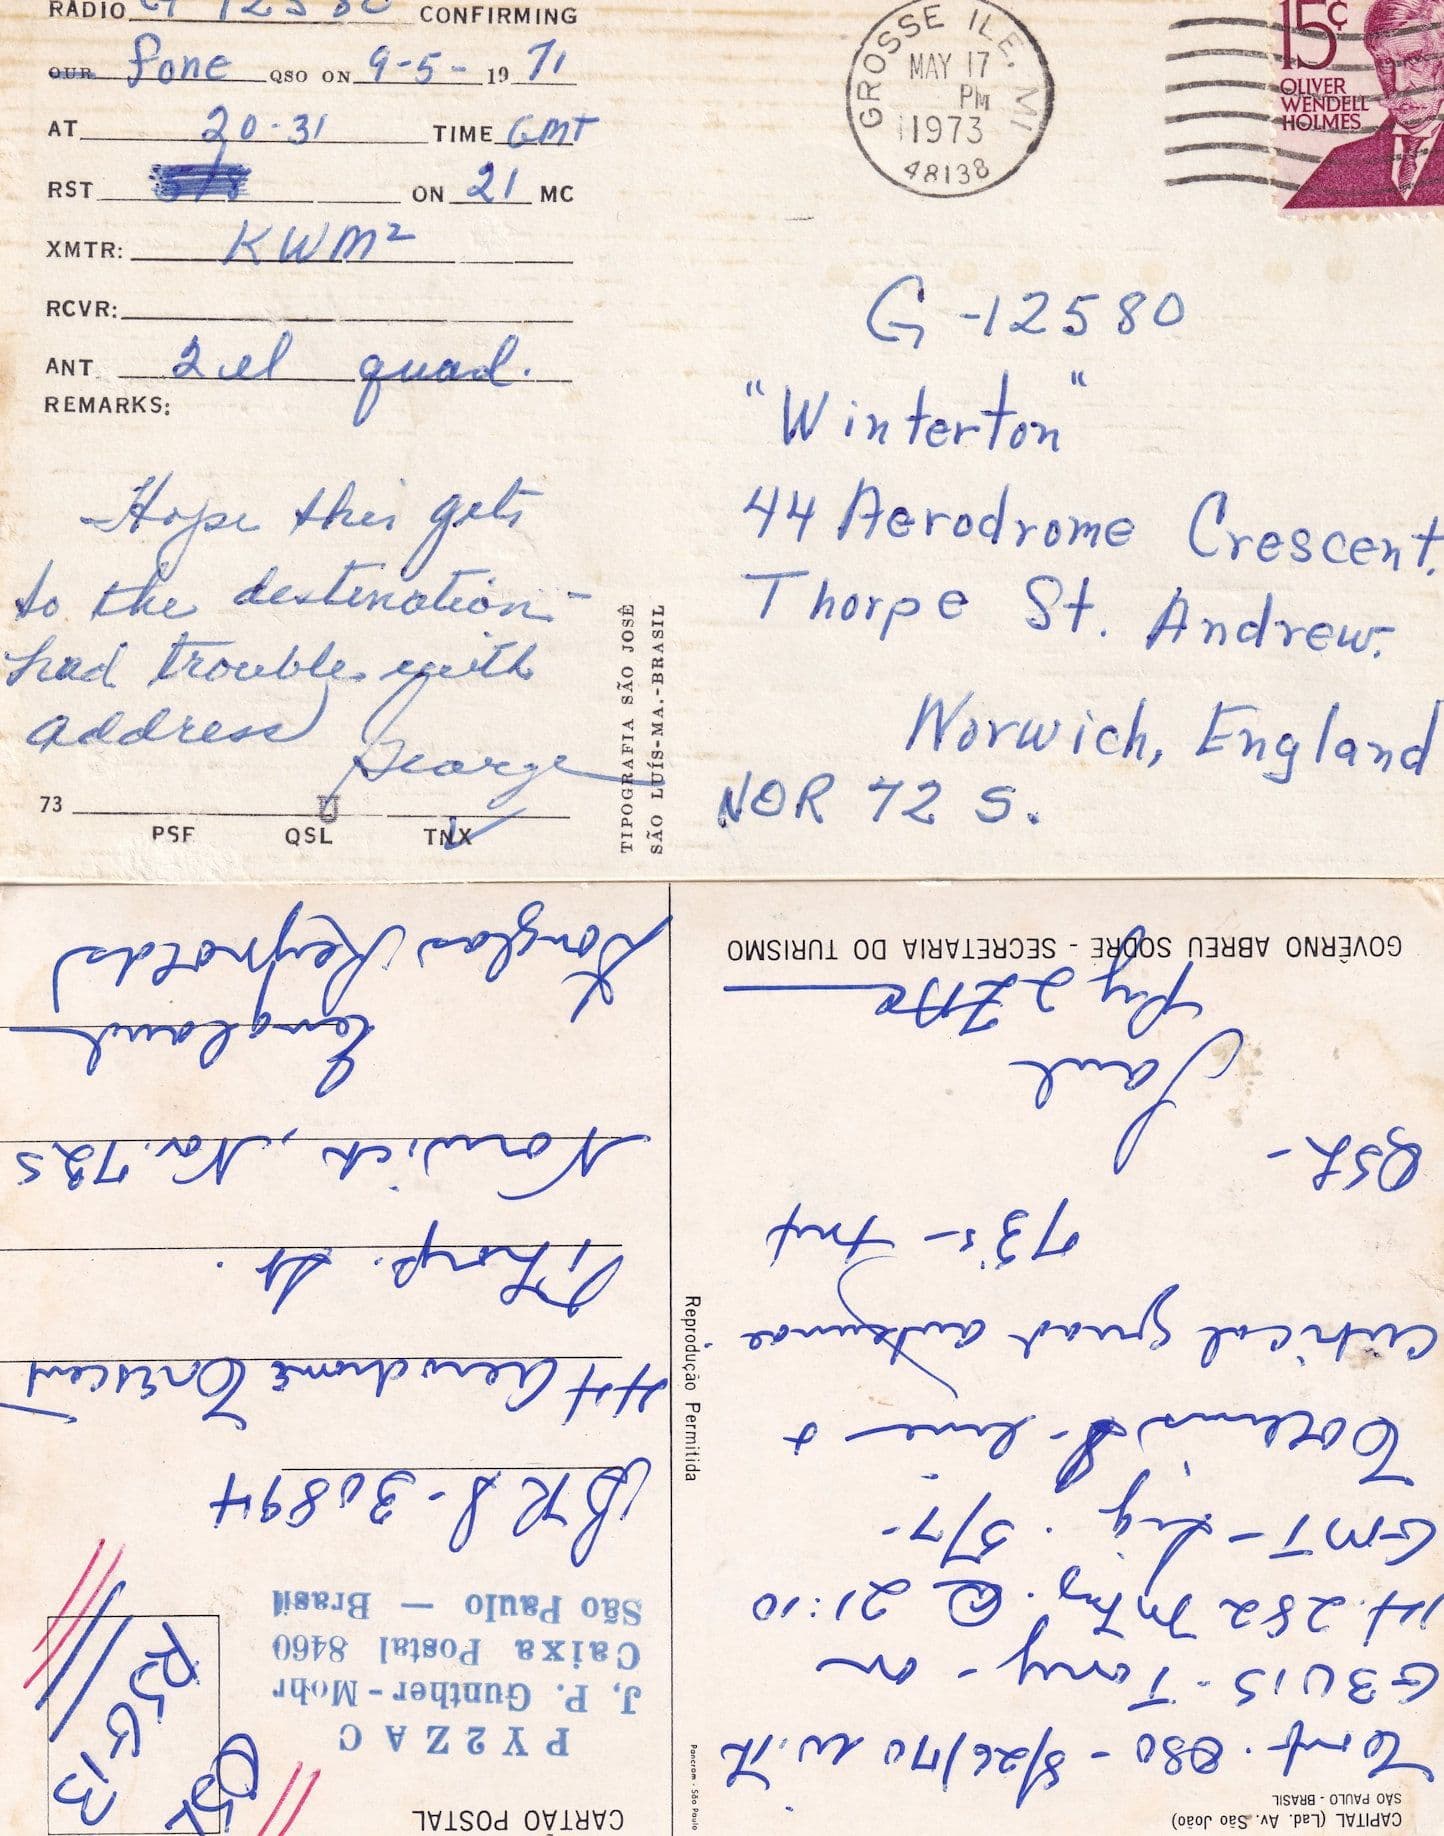 RADIO G 12580 CONFIRMING
OUR fone QSO ON 9-5- 19 71
AT 20-31 TIME GMT
RST ON 21 MC
XMTR: KWM2
RCVR:
ANT 2 el quad.
REMARKS:
Hope this gets
to the destination -
had trouble with
address
George
73
PSE QSL TNX
TIPOGRAFIA SÃO JOSÊ
SÃO LUÍS-MA.-BRASIL
GROSSE ILE, MI
MAY 17
PM
1973
48138
15c
OLIVER
WENDELL
HOLMES
G-12580
"Winterton"
44 Aerodrome Crescent.
Thorpe St. Andrew.
Norwich, England
NOR 72 S.
CAPITAL (Lad. Av. São João)
SÃO PAULO - BRASIL
Conf. QSO - 8/26/70 with
G3UIS - Tony - on
14.282 Mhz. @ 21:10
GMT - Sig. 5/7 -
Collins S-line +
cubical quad antennae
73's - tnx
QSL -
Paul
Py2ZAC
GOVÊRNO ABREU SODRÉ - SECRETARIA DO TURISMO
Pancrom - São Paulo
Reprodução Permitida
CARTÃO POSTAL
QSL
RSGB
PY2ZAC
J. P. Gunther-Mohr
Caixa Postal 8460
São Paulo — Brasil
BRS-30894
44 Aerodrome Crescent
Thorp. St.
Norwich, Nor. 72S
England
Douglas Reynolds